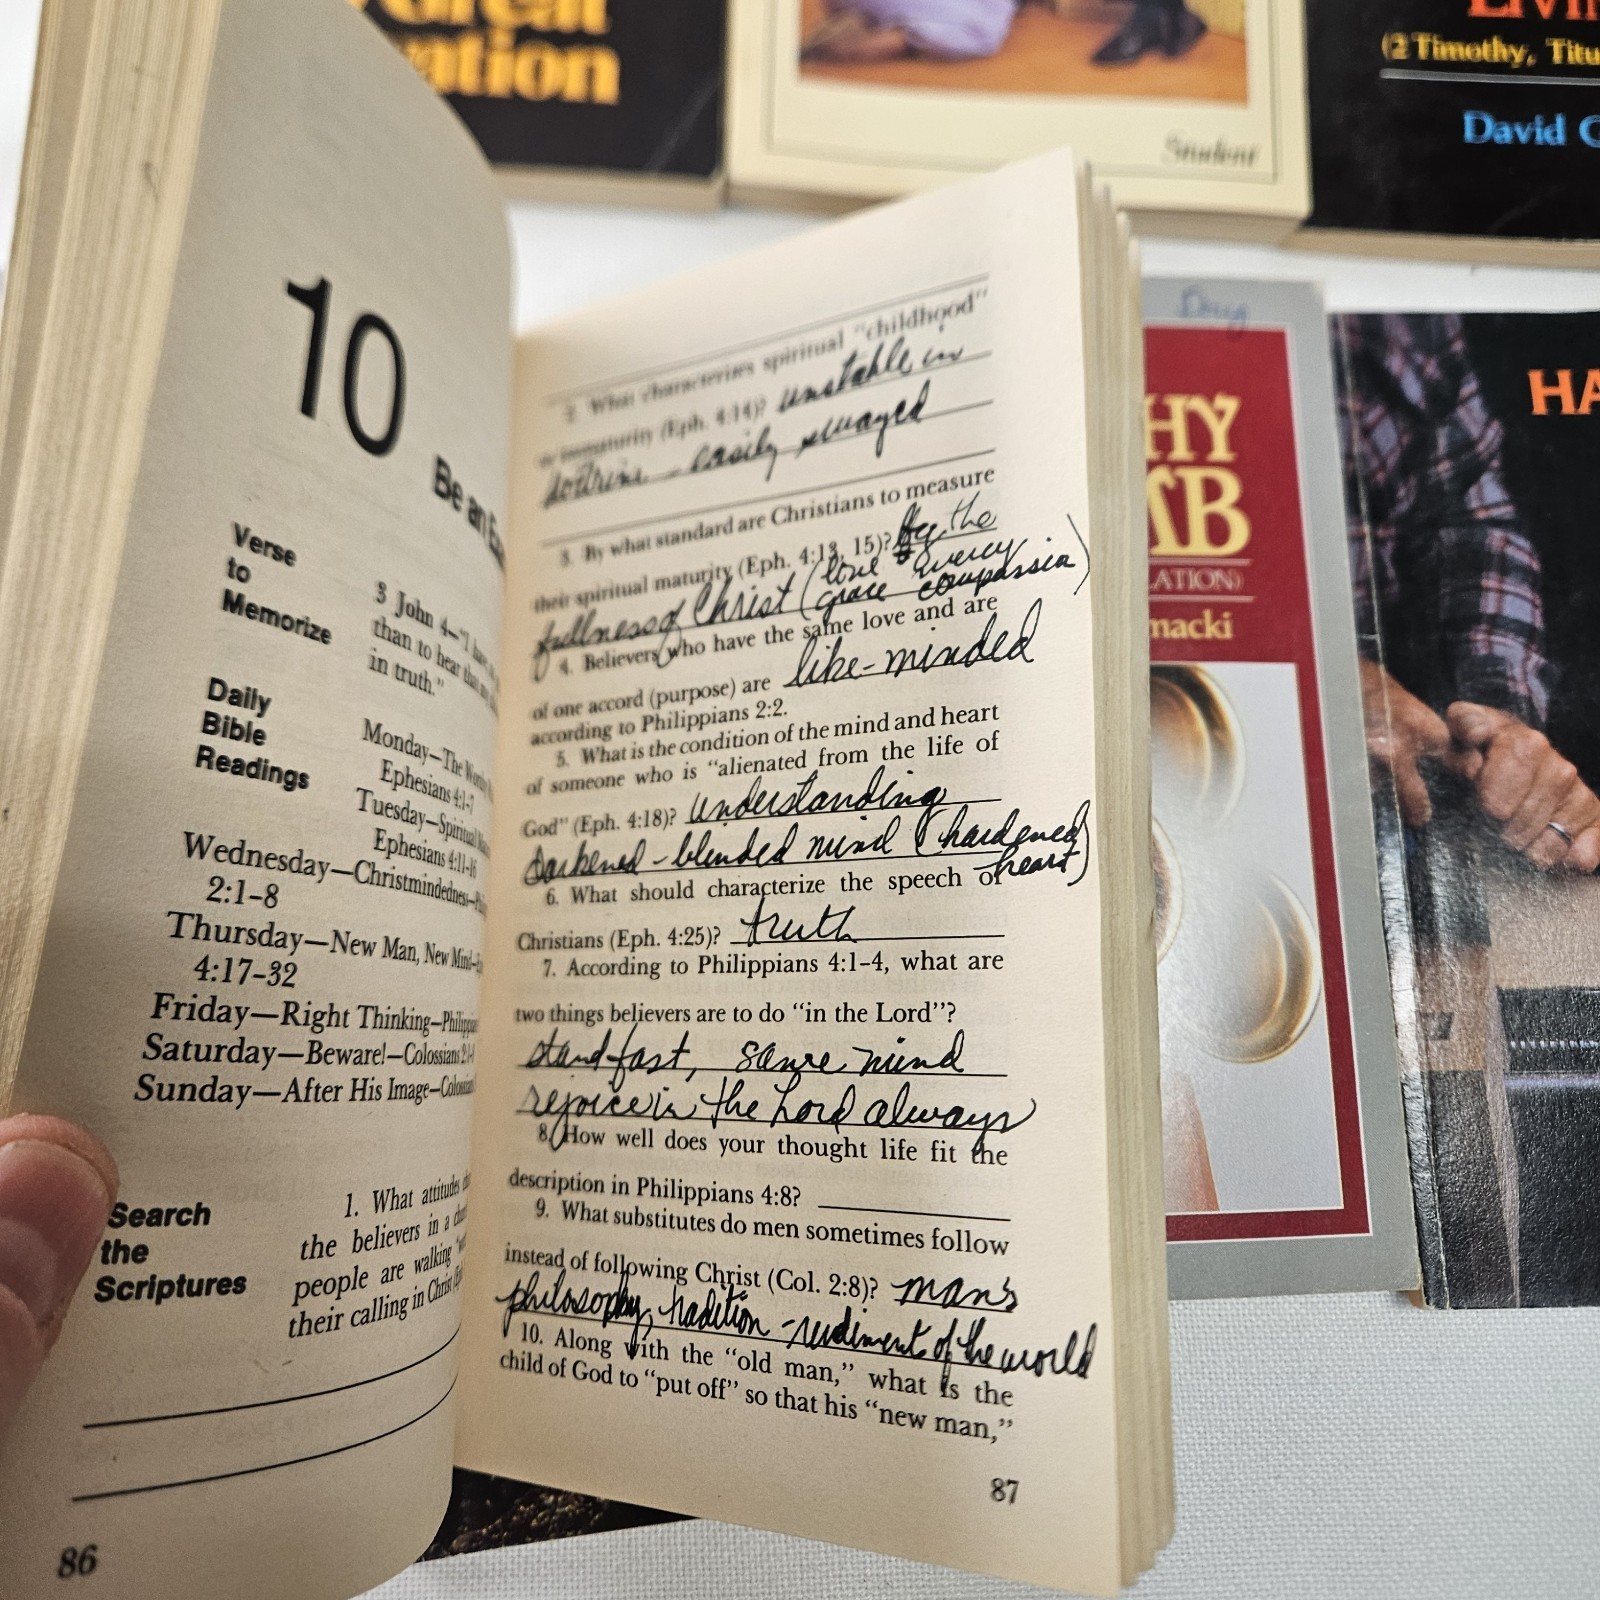 Great
ation
Student
Livin
(2 Timothy, Titu
David G
Doug
HY
MB
LATION)
macki
HA
10
Be an Exa
Verse
to
Memorize
3 John 4—"I have
than to hear that
in truth."
Daily
Bible
Readings
Monday—The Worthy
Ephesians 4:1-7
Tuesday—Spiritual
Ephesians 4:11-16
Wednesday—Christmindedness—Ph
2:1–8
Thursday—New Man, New Mind—
4:17–32
Friday—Right Thinking—Philippi
Saturday—Beware!—Colossians 2:
Sunday—After His Image—Coloss
Search
the
Scriptures
1. What attitudes
the believers in a
people are walking
their calling in Christ
86
2. What characterizes spiritual "childhood"
or immaturity (Eph. 4:14)? unstable in
doctrine – easily swayed
3. By what standard are Christians to measure
their spiritual maturity (Eph. 4:13, 15)? by the
fullness of Christ (love mercy
grace compassion)
4. Believers who have the same love and are
of one accord (purpose) are like-minded
according to Philippians 2:2.
5. What is the condition of the mind and heart
of someone who is "alienated from the life of
God" (Eph. 4:18)? understanding
darkened – blinded mind (hardened
heart)
6. What should characterize the speech of
Christians (Eph. 4:25)? truth
7. According to Philippians 4:1–4, what are
two things believers are to do "in the Lord"?
stand fast, same mind
rejoice in the Lord always
8. How well does your thought life fit the
description in Philippians 4:8?
9. What substitutes do men sometimes follow
instead of following Christ (Col. 2:8)? man's
philosophy, tradition – rudiments of the world
10. Along with the "old man," what is the
child of God to "put off" so that his "new man,"
87